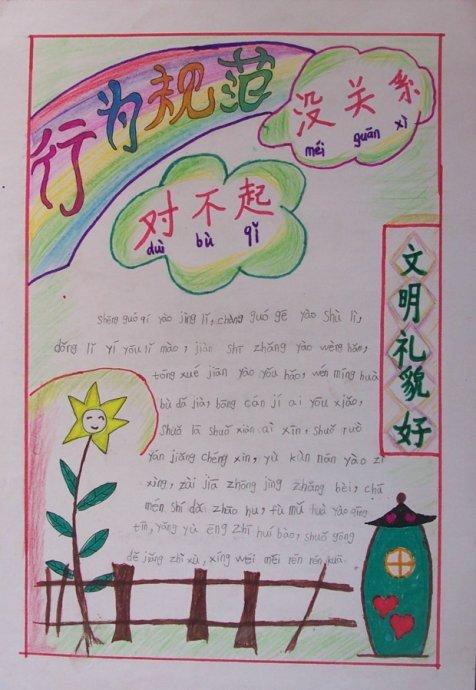 行为规范
没关系
méi guān xì
对不起
duì bù qǐ
文明礼貌好
shēng guó qí yào jìng lǐ, chàng guó gē yào shù lì,
dǒng lǐ yí yǒu lǐ mào, jiàn shī zhǎng yào wèn hǎo,
tóng xué jiān yào yǒu hǎo, wén míng huà
bù dǎ jià, bāng cán jì ai yòu xiǎo,
yán jiǎng chéng xìn, yù kùn nán yào zì
xìng, zài jiā zhōng jìng zhǎng bèi, chū
mén shí dǎ zhāo hu, fù mǔ huà yào qīng
tīn, yǎng yù ēng zhī huí bào,
dé jiǎng zhì xù, xíng wéi měi rén rén kuā.